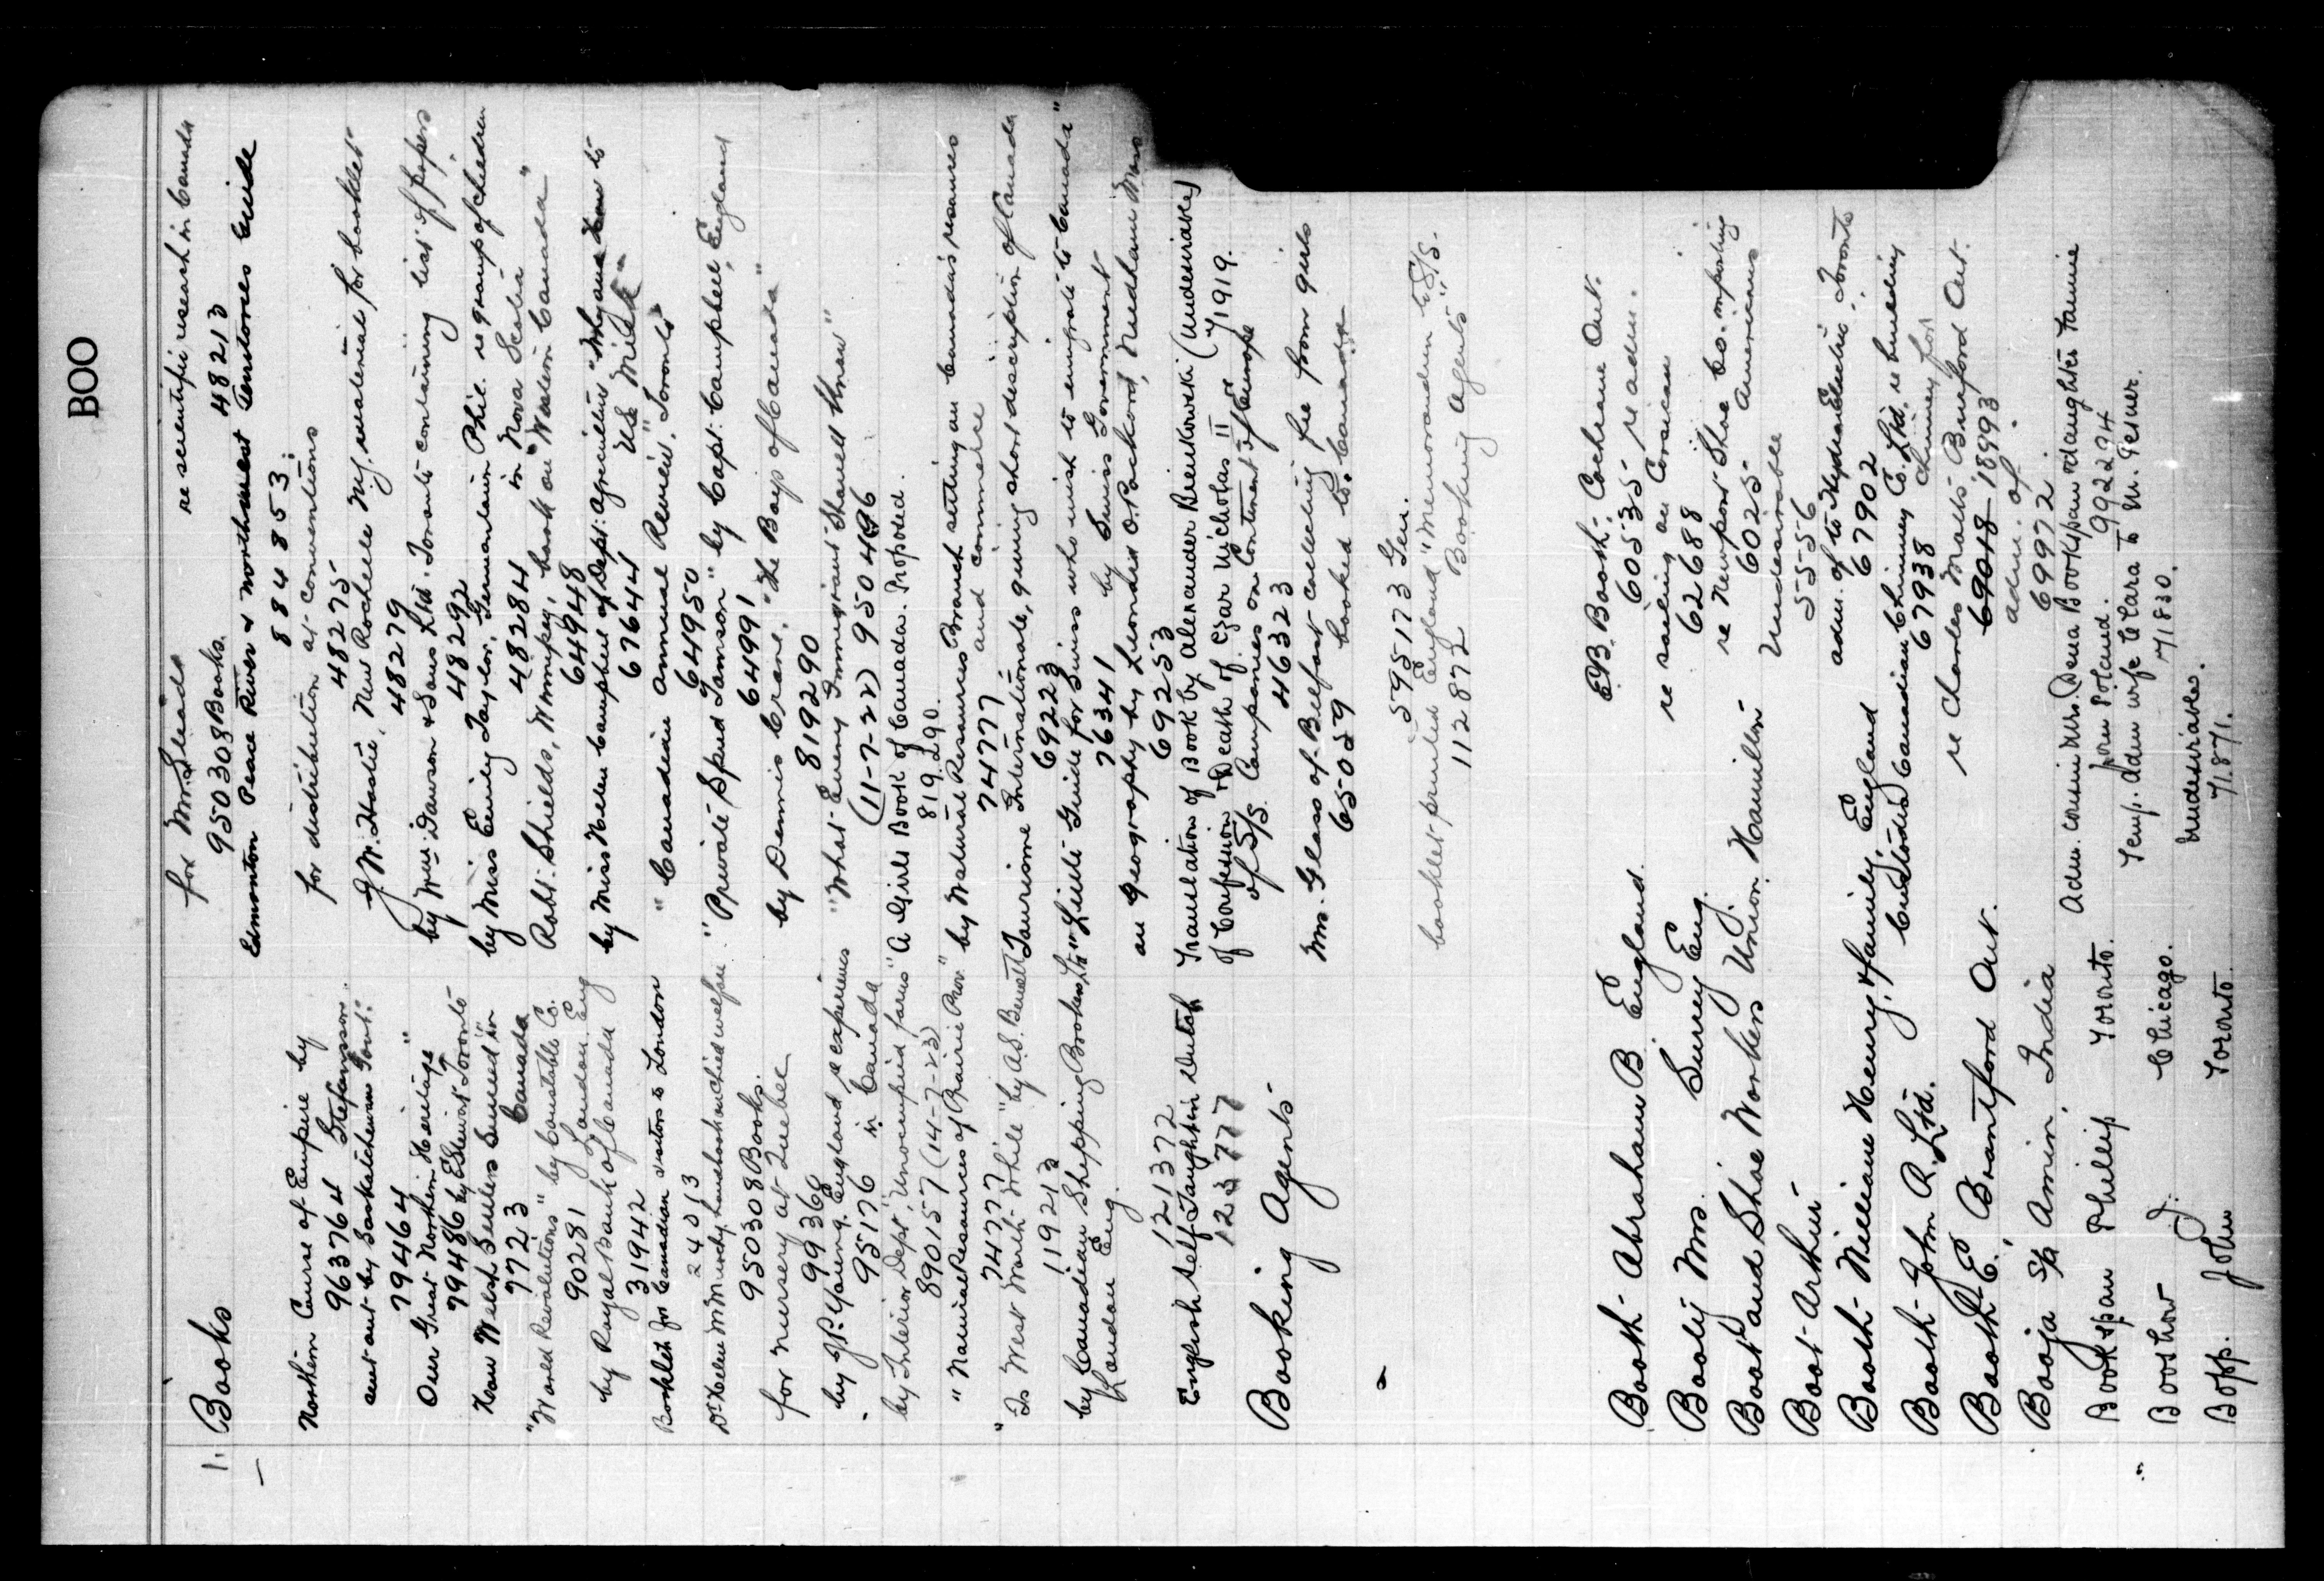 BOO
1. Books
for Mrs. Leads
re scientific research in Canada
950308 Books. 48213
Edmonton Peace River & Northwest Territories Guide
884853
Northern Course of Empire by
for distribution at conventions
963764 Stefansson.
48275
sent out by Saskatchewan Govt.
J. W. Hastie, New Rochelle N.Y. material for booklet
79464
48279
Our Great Northern Heritage"
by Wm. Dawson & Sons Ltd. Toronto containing list of papers
79486 by E. Stewart Toronto
48292
How Welsh Settlers Succeed in
by Miss Emily Taylor, Germantown Phil. re group of children
7723 Canada
48284 in Nova Scotia
"World Revolutions" by Constable Co.
Robt. Shields, Winnipeg, book on "Western Canada"
90281 London. Eng
64948
by Royal Bank of Canada
by Miss Helen Campbell of Dept. agriculture "Why and How to
31942
67644 Use Milk"
Booklet for Canadian visitors to London
" Canadian Annual Review". Toronto
24013
64950
Dr. Helen McMurchy, handbook on child welfare
"Private Spud Tamson" by Capt. Campbell, England
950308 Books.
64991
for nursery at Quebec
by Dennis Crane. "The Boys of Canada"
99360
819290
by J.P. Young. England re experiences
"What Every Immigrant Should Know"
95176 in Canada
(11-7-22) 950496
by Interior Dept, "Unoccupied farms"
"A Girls Book of Canada. Proposed.
890157 (14-7-23)
819290.
"Natural Resources of Prairie Prov."
by Natural Resources Branch setting out Canada's resources
74777
74777 and commerce
"To West Worth While" by A.S. Bennett
Tourisme Internationale, giving short description of Canada
119213
69223
by Canadian Shipping Brokers, Ltd
"Little Guide for Swiss who wish to emigrate to Canada"
London Eng.
76341 by Swiss Government
on Geography by Leonard O. Packard, Needham Mass
121372
69253
English self-Taught in Dutch
Translation of Book by Alexander Bienkowski (undesirable)
123777
of Confession & Death of Czar Nicholas II of 1919.
of S/S. Companies on Continent of Europe
Booking Agents
44623
Mrs. Glass of Belfast collecting fee from girls
65059 booked to Canada
595173 Gen.
booklet printed England "Memorandum to S/S.
112872 Booking Agents"
Booth Abraham B. England.
E.B. Booth, Cochrane Ont.
60535 re adm.
Booty Mrs. Surrey Eng.
re sailing on Corsican
62688
Boot and Shoe Workers Union. Hamilton
re Newport Shoe Co. importing
6025 Americans
Boot Arthur
Undesirable
5-5-56
Booth William Henry & family, England
adm. of to Hydro Electric, Toronto
67902
Booth John R. Ltd.
Custodis Canadian Chimney Co. Ltd. re building
67938 chimney for
Booth E., Brantford Ont.
re Charles Malts, Burford Ont.
69018-18993
Booja S/a Amin, India
adm. of.
69972.
Bookspan Phillip Toronto.
Adm. cousin Mrs. Dena Bookspan & daughter Fannie
from Poland. 992294
Booshow J. Chicago.
Temp. adm wife Clara to M. Gesner.
71830.
Bopp. John Toronto.
Undesirable.
71871.